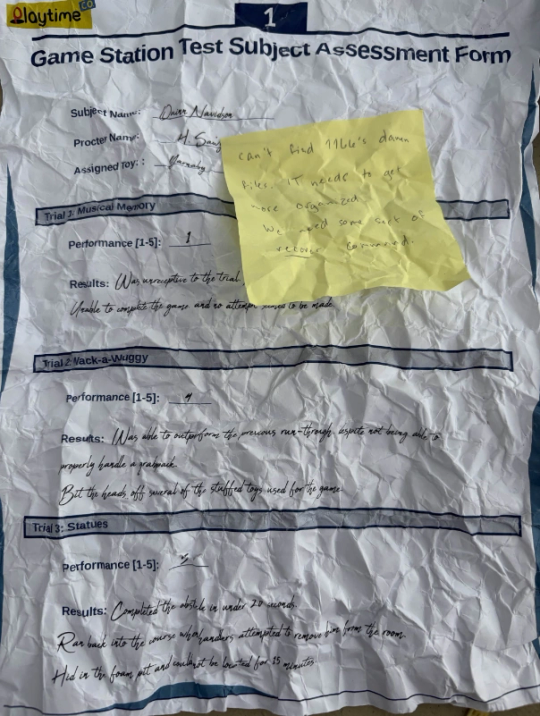 Playtime CO
1
Game Station Test Subject Assessment Form
Subject Name: Quinn Navidson
Procter Name: M. Sai
Assigned Toy: : Barnaby
can't find 1166's damn
files. IT needs to get
more organized.
We need some sort of
command.
Trial 1: Musical Memory
Performance [1-5]: 1
Results: Was unreceptive to the trial
Unable to complete the game and no attempt to be made
Trial 2: Wack-a-Wuggy
Performance [1-5]: 4
Results: Was able to outperform the previous run-through, espite not being able to
properly handle a grabpack.
Bit the heads off several of the stuffed toys used for the game.
Trial 3: Statues
Performance [1-5]:
Results: Completed the obstcle in under 20 seconds.
Ran back into the course when handlers attempted to remove him form the room.
Hid in the foam pit and could not be located for 15 minutes